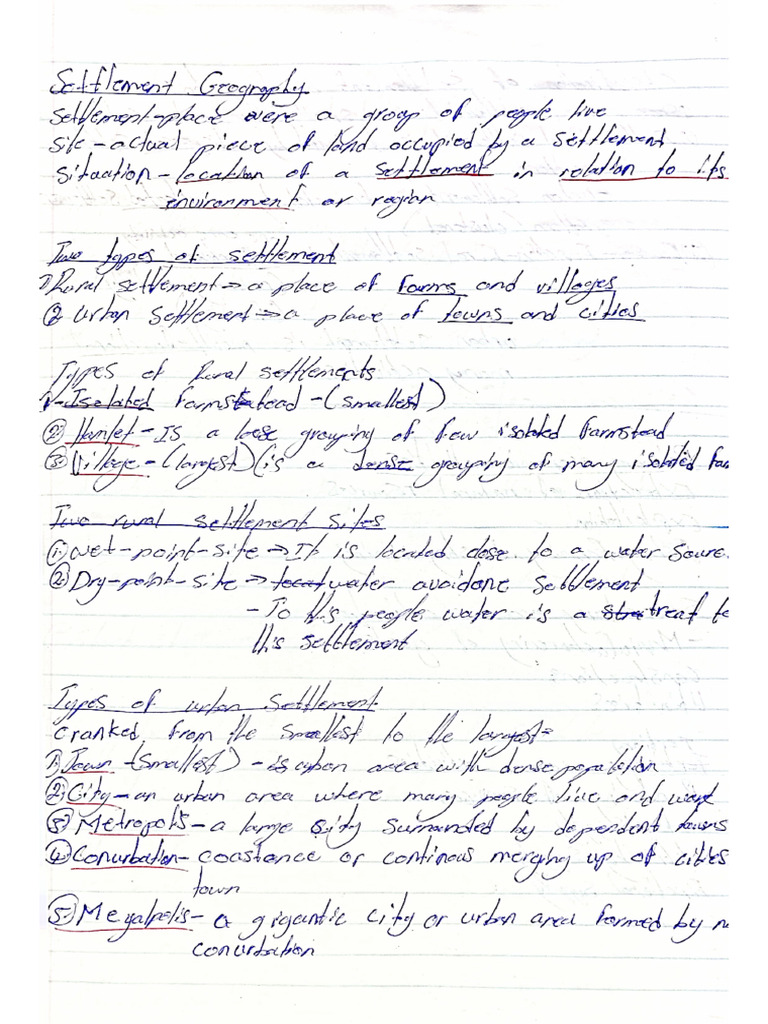 Settlement Geography
Settlement-place were a group of people live
Site-actual piece of land occupied by a settlement
Situation-location of a settlement in relation to its
environment or region
Two types of settlement
1) Rural settlement→a place of farms and villages
② Urban Settlement→a place of towns and cities
Types of Rural settlements
1-Isolated Farmstead-(smallest)
② Hamlet-Is a lose grouping of few isolated Farmstead
③ Village-(largest)(is a dense grouping of many isolated Fa
Two rural settlement sites
① Wet-point-site→It is located close to a water Source
② Dry-point-site→ water avoidanc settlement
-To this people water is a treat to
this settlement
Types of urban Settlement
cranked from the smallest to the largest-
1) Town-(Smallest)-is urban area with dense population
② City-an urban area where many people live and work
③ Metropolis-a large city surrounded by dependent towns
④ Conurbation-coastance or continous merging up of cities
town
⑤ Megalpolis-a grigantic city or urban area formed by
conurbation